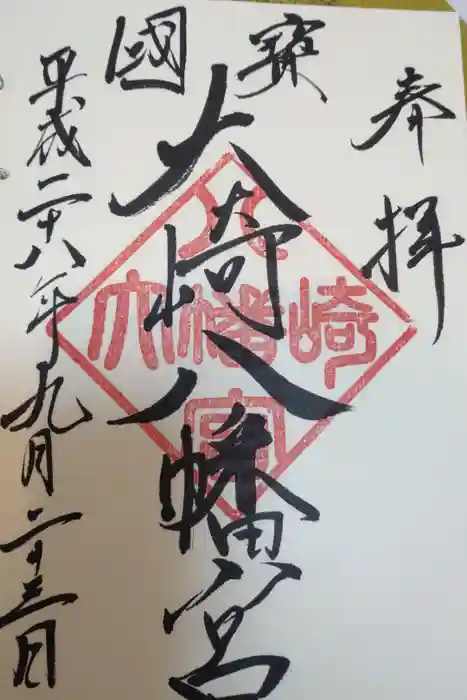 奉拝
國寶
大崎八幡宮
平成二十八年九月二十三日
大崎
八幡宮